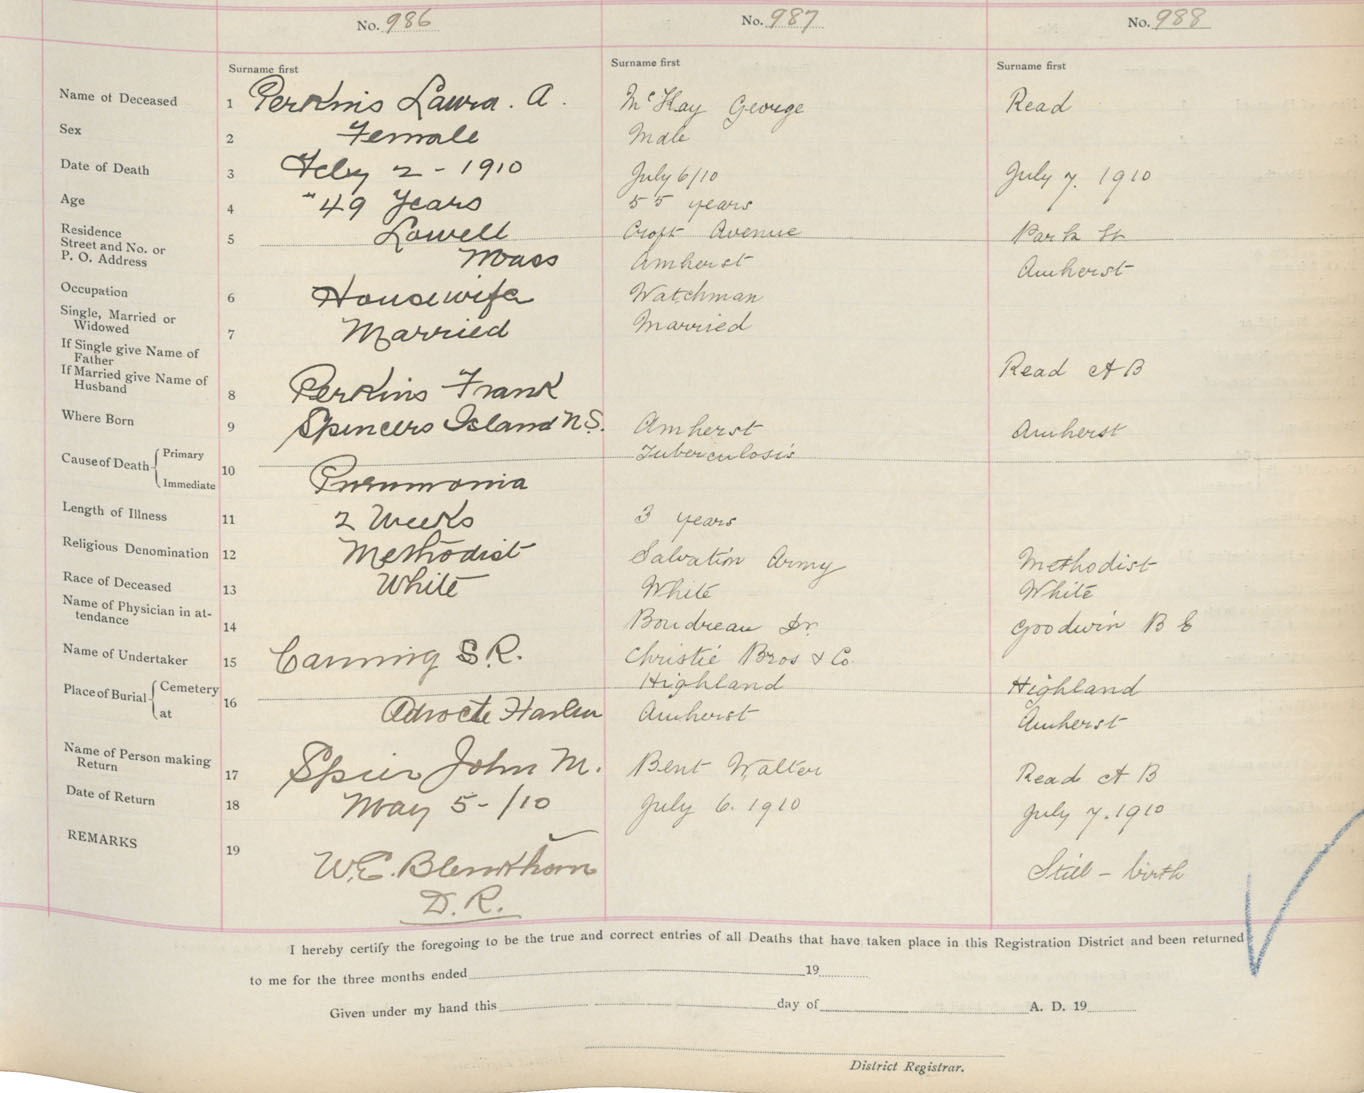 No. 986 No. 987 No. 988
Surname first Surname first Surname first
Name of Deceased 1 Perkins Laura. A. McKay George Read
Sex 2 Female Male
Date of Death 3 Feby 2 - 1910 July 6/10 July 7. 1910
Age 4 49 Years 55 years
Residence
Street and No. or 5 Lowell Croft Avenue Park St
P. O. Address Mass Amherst Amherst
Occupation 6 Housewife Watchman
Single, Married or
Widowed 7 Married Married
If Single give Name of
Father
If Married give Name of Read A B
Husband 8 Perkins Frank
Where Born 9 Spencers Island N.S. Amherst Amherst
Cause of Death Primary Tuberculosis
10 Immediate Pneumonia
Length of Illness 11 2 Weeks 3 years
Religious Denomination 12 Methodist Salvation Army Methodist
Race of Deceased 13 White White White
Name of Physician in at-
tendance 14 Boudreau Dr. Goodwin B E
Name of Undertaker 15 Canning S.R. Christie Bros & Co.
Place of Burial Cemetery 16 Highland Highland
at Advocte Harbor Amherst Amherst
Name of Person making
Return 17 Spicer John M. Bent Walter Read A B
Date of Return 18 May 5-/10 July 6. 1910 July 7. 1910
REMARKS 19 W.E. Blenkhorn Still - birth
D. R.
I hereby certify the foregoing to be the true and correct entries of all Deaths that have taken place in this Registration District and been returned
to me for the three months ended 19
Given under my hand this day of A. D. 19
District Registrar.